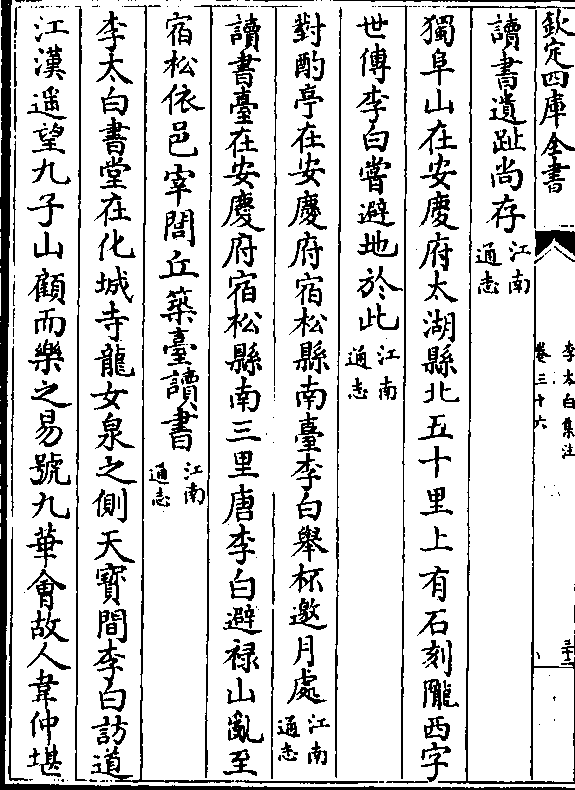 欽定四庫全書
李太白集注
卷三十六
讀書遺趾尚存江南通志
獨阜山在安慶府太湖縣北五十里上有石刻隴西字
世傳李白嘗避地於此江南通志
對酌亭在安慶府宿松縣南臺李白舉杯邀月處江南通志
讀書臺在安慶府宿松縣南三里唐李白避祿山亂至
宿松依邑宰閭丘築臺讀書江南通志
李太白書堂在化城寺龍女泉之側天寶間李白訪道
江漢遥望九子山顧而樂之易號九華會故人韋仲堪